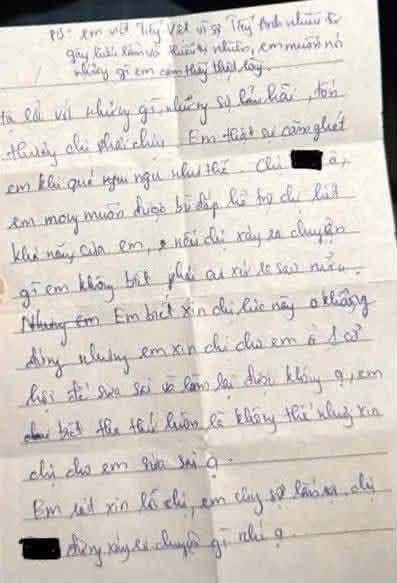 PS: em viết Tiếng Việt vì sợ Tiếng Anh nhiều từ
gây hiểu lầm và thiếu tự nhiên, em muốn nói
những gì em cảm thấy thật lòng.
tả lỗi với những gì, những sự lừa dối, tổn
thương chị phải chịu. Em thật sự căm ghét
em khi quá ngu như thế. Chị ạ,
em mong muốn được bù đắp hỗ trợ chị hết
khả năng của em, nếu chị xảy ra chuyện
gì em không biết phải cư xử ra sao nữa.
Nhưng em Em biết xin chị lúc này không
đúng nhưng em xin chị cho em ạ 1 cơ
hội để sửa sai và làm lại được không ạ, em
biết tha thứ luôn là không thể nhưng xin
chị cho em sửa sai ạ.
Em rất xin lỗi chị, em chị
đừng xảy ra chuyện gì nhé ạ.